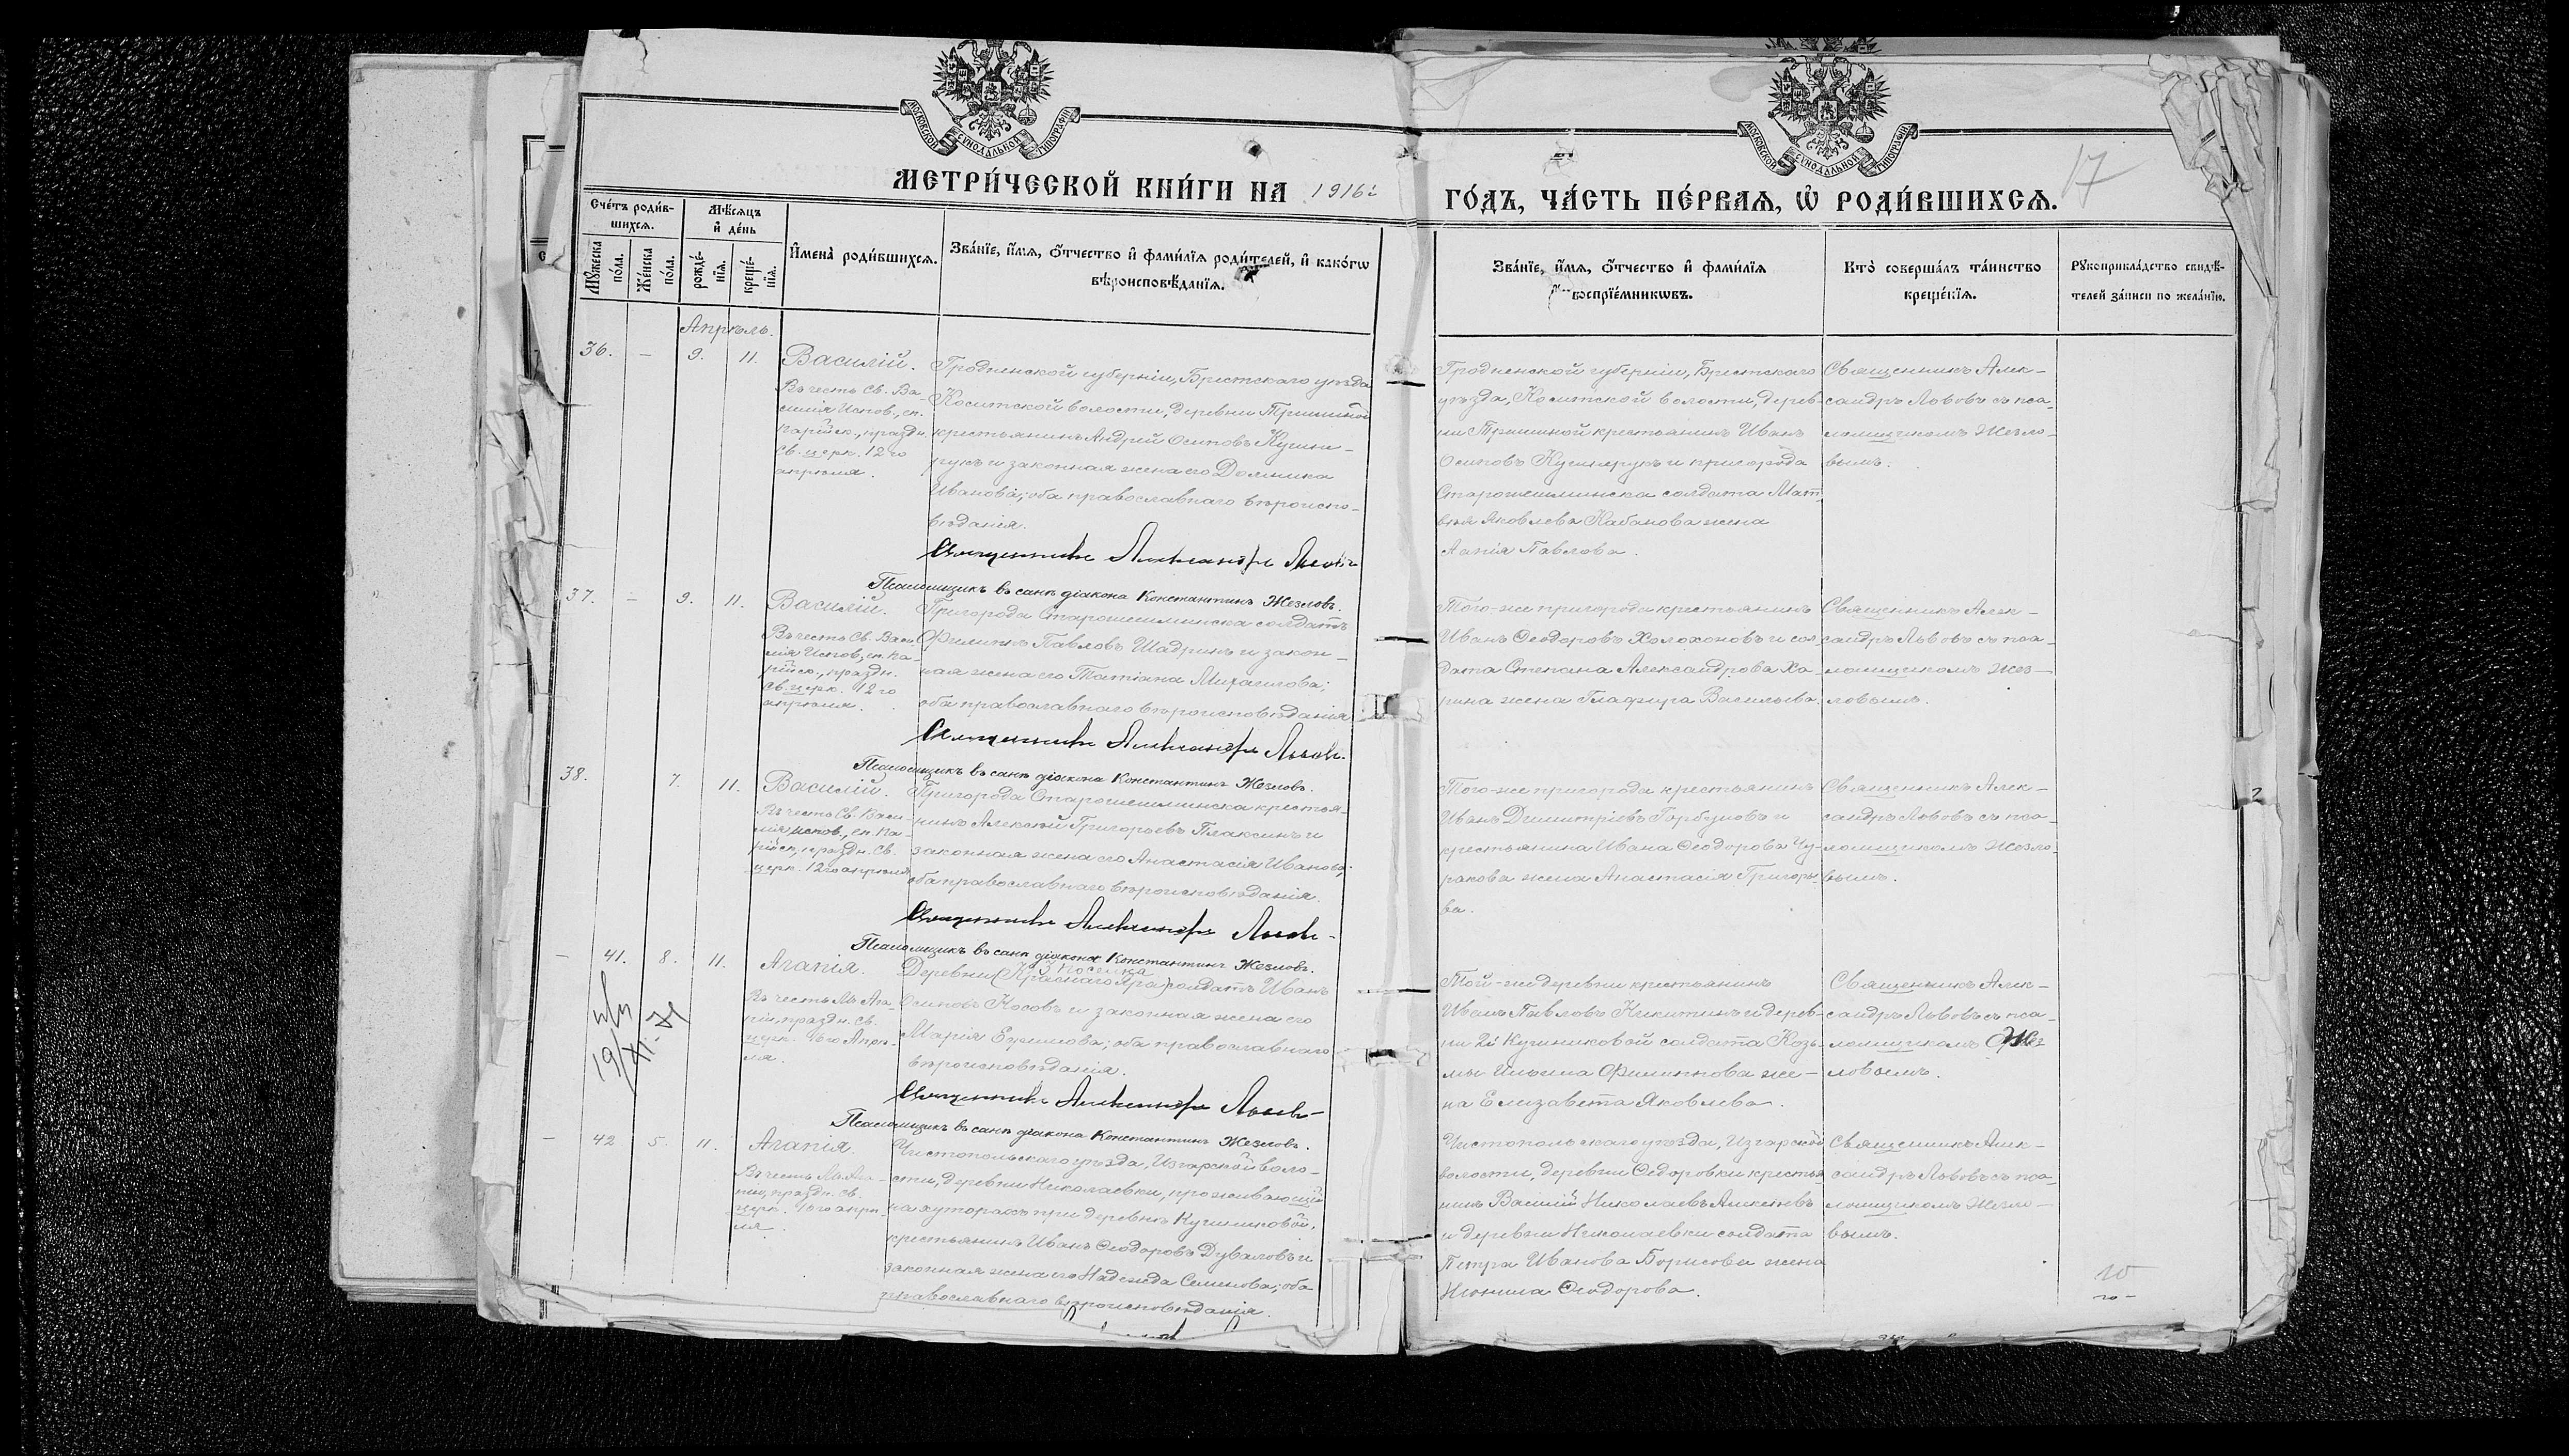 МОСКОВСКОЙ СѴНОДАЛЬНОЙ ТИПОГРАФІИ
МОСКОВСКОЙ СѴНОДАЛЬНОЙ ТИПОГРАФІИ
МЕТРИ́ЧЕСКОЙ КНИ́ГИ НА 1916й
ГО́ДЪ, ЧА́СТЬ ПЕ́РВАЯ, Ѡ҆ РОДИ́ВШИХСЯ.
17
Сче́тъ роди́в-
шихся.
Мꙋ́жеска по́ла.
Же́нска по́ла.
Мѣ́сяцъ
и҆ де́нь
рожде́-
нїѧ.
креще́-
нїѧ.
И҆мена̀ роди́вшихся.
Зва́нїе, и҆́мя, ѻ҆́тчество и҆ фами́лїя роди́телей, и҆ како́гѡ
вѣроисповѣ́данїя.
Зва́нїе, и҆́мя, ѻ҆́тчество и҆ фами́лїя
воспрїе́мникѡвъ.
Кто̀ соверша́лъ та́инство
креще́нїя.
Рꙋкоприкла́дство свидѣ́-
телей за́писи по жела́нїю.
Апрѣль.
36. — 9. 11.
Василій.
Въ честь Св. Ва-
силія Испов., еп.
Парійск., праздн.
Св. церк. 12го
апрѣля.
Гродненской губерніи, Брестскаго уѣзда
Косичской волости, деревни Тришиной
крестьянинъ Андрей Осиповъ Кушне-
рукъ и законная жена его Домника
Иванова; оба православнаго вѣроиспо-
вѣданія.
Священникъ Александръ Львовъ
Псаломщикъ въ санѣ діакона Константинъ Жезловъ.
Гродненской губерніи, Брестскаго
уѣзда, Косичской волости, дерев-
ни Тришиной крестьянинъ Иванъ
Осиповъ Кушнерукъ и пригорода
Старошешминска солдата Мат-
вѣя Яковлева Кабанова жена
Павлова.
Священникъ Алек-
сандръ Львовъ съ пса-
ломщикомъ Жезло-
вымъ.
37. — 9. 11.
Василій.
Въ честь Св. Васи-
лія Испов., еп. Па-
рійск., праздн.
Св. церк. 12го
апрѣля.
Пригорода Старошешминска солдатъ
Филиппъ Павловъ Шадринъ и закон-
ная жена его Татіана Михаилова;
оба православнаго вѣроисповѣданія
Священникъ Александръ Львовъ.
Псаломщикъ въ санѣ діакона Константинъ Жезловъ.
Того-же пригорода крестьянинъ
Иванъ Ѳеодоровъ Холохоновъ и сол-
дата Степана Александрова Ха-
рина жена Глафира Васильева.
Священникъ Алек-
сандръ Львовъ съ пса-
ломщикомъ Жез-
ловымъ.
38. 7. 11.
Василій.
Въ честь Св. Васи-
лія испов., еп. Па-
рійск., праздн. Св.
церк. 12го апрѣля
Пригорода Старошешминска крестья-
нинъ Алексѣй Григорьевъ Плаксинъ и
законная жена его Анастасія Иванова;
оба православнаго вѣроисповѣданія.
Священникъ Александръ Львовъ-
Псаломщикъ въ санѣ діакона Константинъ Жезловъ.
Того-же пригорода крестьянинъ
Иванъ Димитріевъ Горбуновъ и
крестьянина Ивана Ѳеодорова Чу-
ракова жена Анастасія Григорье-
ва.
Священникъ Алек-
сандръ Львовъ съ пса-
ломщикомъ Жезло-
вымъ.
— 41. 8. 11.
19/XI-71
Агапія.
Въ честь Мц Ага-
піи, праздн. Св.
церк. 16го Апрѣ-
ля.
поселка
Деревни (Краснаго Яра) солдатъ Иванъ
Осиповъ Носовъ и законная жена его
Марія Ефимова; оба православнаго
вѣроисповѣданія.
Священникъ Александръ Львовъ-
Псаломщикъ въ санѣ діакона Константинъ Жезловъ.
Той-же деревни крестьянинъ
Иванъ Павловъ Никитинъ и дерев-
ни 2й Кушниковой солдата Козь-
мы Ильина Филиппова же-
на Елизавета Яковлева.
Священникъ Алек-
сандръ Львовъ съ пса-
ломщикомъ Жез-
ловымъ.
— 42 5. 11.
Агапія.
Въ честь Мц Ага-
піи, праздн. Св.
церк. 16го апрѣ-
ля.
Чистопольскаго уѣзда, Изгарской воло-
сти, деревни Николаевки, проживающій
на хуторахъ при деревнѣ Кушниковой,
крестьянинъ Иванъ Ѳеодоровъ Дуваловъ и
законная жена его Надежда Семенова; оба
православнаго вѣроисповѣданія.
Чистопольскаго уѣзда, Изгарской
волости, деревни Ѳедоровки крестья-
нинъ Василій Николаевъ Алксѣевъ
и деревни Николаевки солдата
Петра Иванова Борисова жена
Ѳеодорова.
Священникъ Алек-
сандръ Львовъ съ пса-
ломщикомъ Жезло-
вымъ.